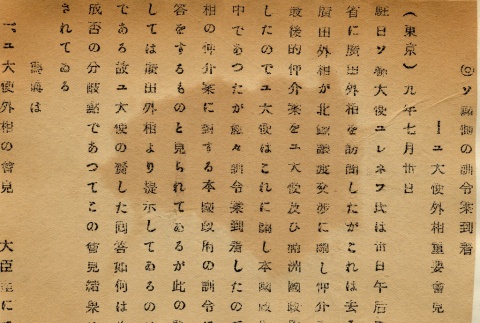 ◎ソ聯側の訓令案到着
――ユ大使外相重要會見
(東京)九年七月廿日
駐日ソ聯大使ユレネフ氏は廿日午后
省に廣田外相を訪問したがこれは去る
廣田外相が北鐵譲渡交渉に關し仲介
最後的仲介案をユ大使及び滿洲國政
したのでユ大使はこれに關し本國政
中であつたが愈々訓令案到着したので
相の仲介案に對する本國政府の訓令に
答をするものと見られてゐるが此の
しては廣田外相より提示してあるの
である故ユ大使の齎した回答如何は
成否の分岐點であつてこの會見結果は
されてゐる
ユ大使外相の會見 大臣室に